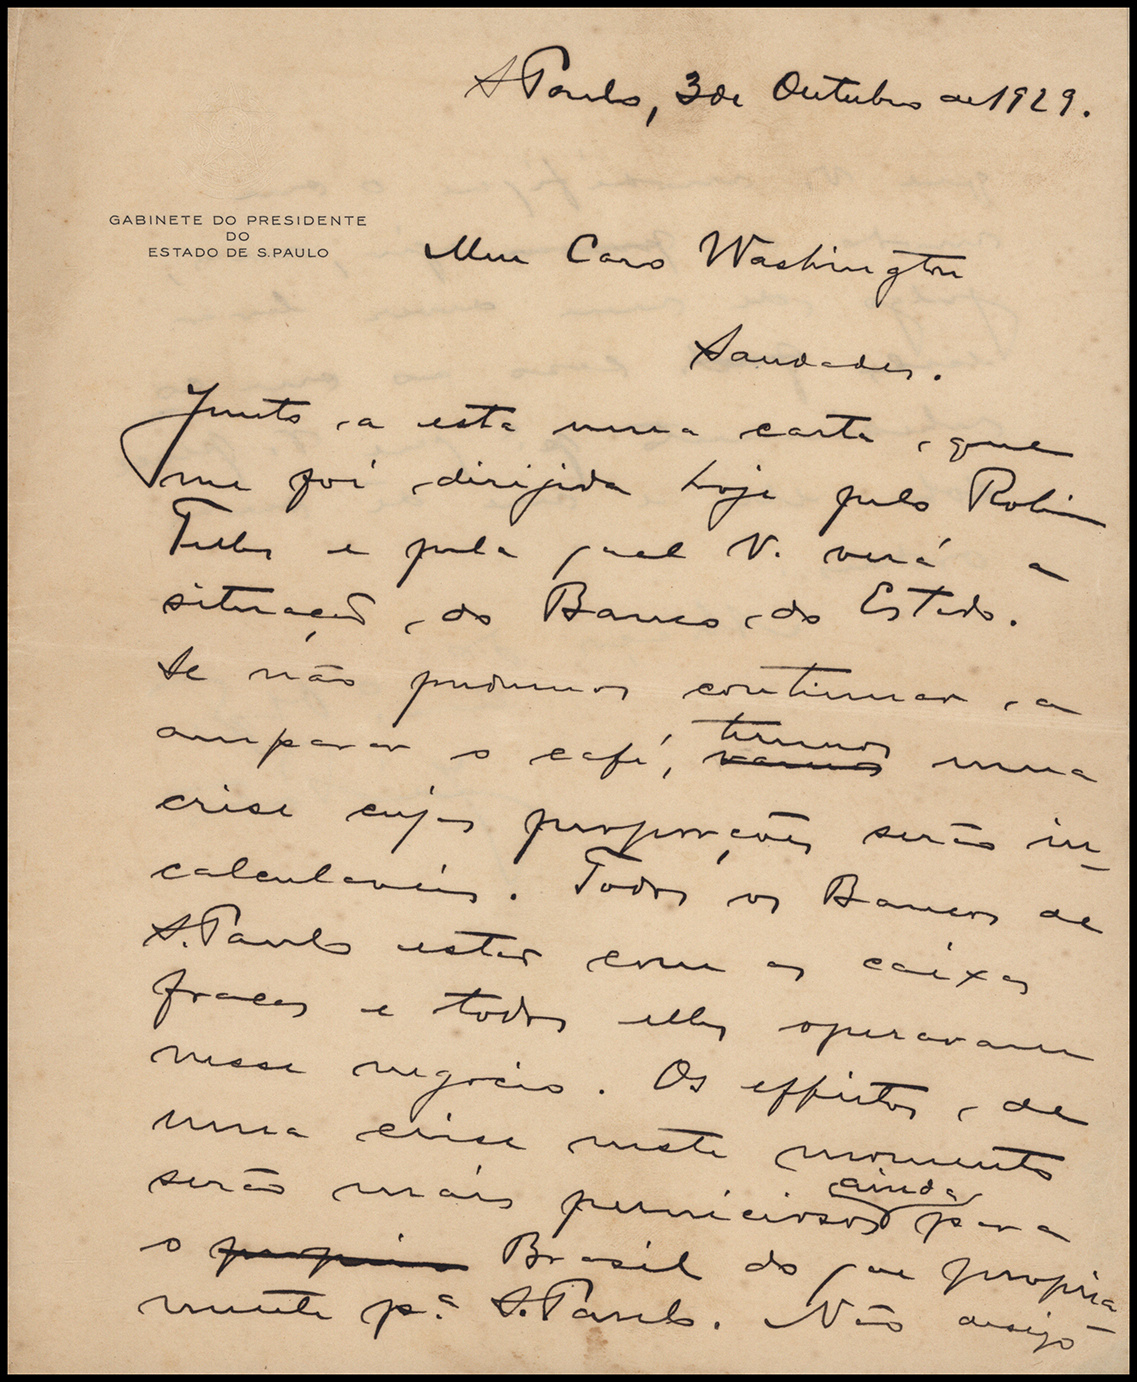 S. Paulo, 3 de Outubro de 1929.
GABINETE DO PRESIDENTE
DO
ESTADO DE S. PAULO
Meu Caro Washington
Saudades.
Junto a esta uma carta, que
me foi dirigida hoje pelo Rolim
Telles e pela qual V. verá a
situação do Banco do Estado.
Se não pudermos continuar a
amparar o café, teremos uma
crise cujas proporções serão in-
calculaveis. Todos os Bancos de
S. Paulo estão com as caixas
fracas e todos elles operavam
nesse negocio. Os effeitos de
uma crise neste momento
serão mais perniciosos ainda para
o Brasil do que propria-
mente pª S. Paulo. Não desejo